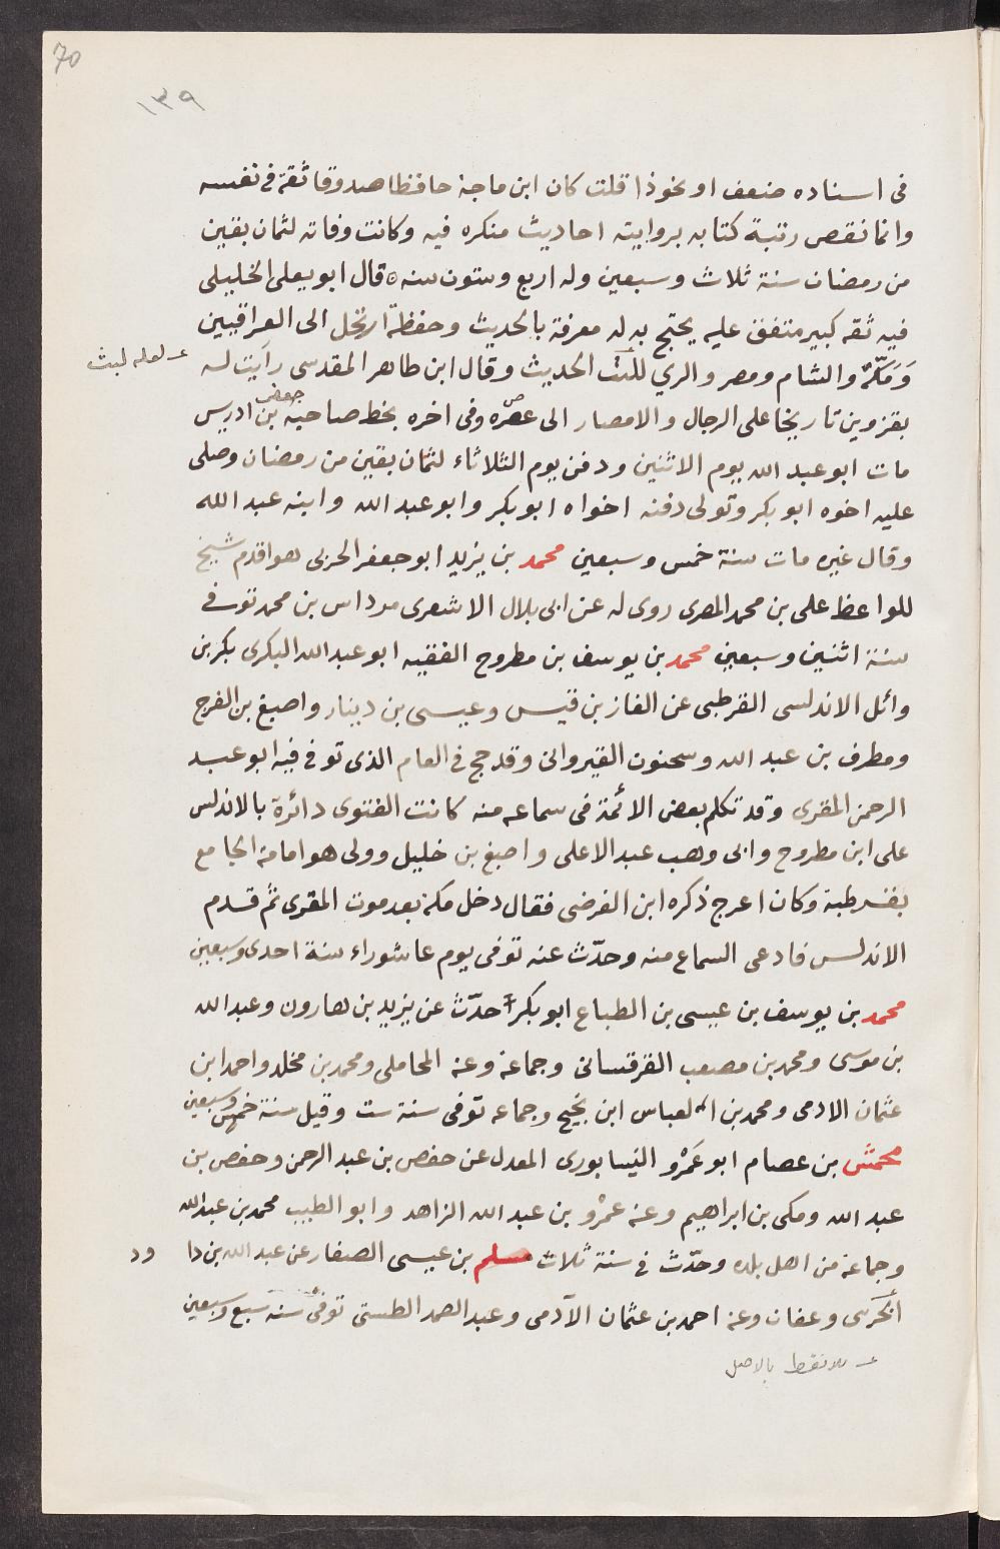 70
١٣٩
فى اسناده ضعف او نحوذا قلت كان ابن ماجة حافظا صدوقا ثقة فى نفسه
وانما نقص رتبة كتابه بروايته احاديث منكره فيه وكانت وفاته لثمان بقين
من رمضان سنة ثلاث وسبعين وله اربع وستون سنه ٥ قال ابو يعلى الخليلى
فيه ثقه كبير متفق عليه يحتج به له معرفة بالحديث وحفظة ارتحل الى العراقيين
وَمَكّة والشام ومصر والري للكتب الحديث وقال ابن طاهر المقدسى رأيت له
ـ لعله لبث
بقزوين تاريخا على الرجال والامصار الى عصره وفى اخره بخط صاحبه جعفر بن ادريس
مات ابو عبد الله يوم الاثنين ودفن يوم الثلاثاء لثمان بقين من رمضان وصلى
عليه اخوه ابو بكر وتولى دفنه اخواه ابو بكر وابو عبد الله وابنه عبد الله
وقال غيره مات سنة خمس وسبعين محمد بن يزيد ابو جعفر الحربى هو اقدم شيخ
للواعظ على بن محمد المصرى روى له عن ابى بلال الاشعرى مرداس بن محمد توفى
سنة اثنين وسبعين محمد بن يوسف بن مطروح الفقيه ابو عبد الله البكرى بكر بن
وائل الاندلسى القرطبى عن الغاز بن قيس وعيسى بن دينار واصبغ بن الفرج
ومطرف بن عبد الله وسحنون القيروانى وقد حج فى العام الذى توفى فيه ابو عبد
الرحمن المقرى وقد تكلم بعض الائمة فى سماعه منه كانت الفتوى دائرة بالاندلس
على ابن مطروح وابى وهب عبد الاعلى واصبغ بن خليل وولى هو امامة الجامع
بقرطبة وكان اعرج ذكره ابن الفرضى فقال دخل مكة بعد موت المقرى ثم قدم
الاندلس فادعى السماع منه وحدّث عنه توفى يوم عاشوراء سنة احدى وسبعين
محمد بن يوسف بن عيسى بن الطباع ابو بكر حدّث عن يزيد بن هارون وعبد الله
بن موسى ومحمد بن مصعب القرقسانى وجماعة وعنه المحاملى ومحمد بن مخلد واحمد ابن
عثمان الادمى ومحمد بن العباس ابن نجيح وجماعه توفى سنة ست وقيل سنة خمس وسبعين
محمش بن عصام ابو عَمْرو النيسابورى المعدل عن حفص بن عبد الرحمن وحفص بن
عبد الله ومكى بن ابراهيم وعنه عمْرو بن عبد الله الزاهد وابو الطيب محمد بن عبد الله
وجماعة من اهل بلده وحدّث فى سنة ثلاث مسلم بن عيسى الصفار عن عبد الله بن دا ود
الحرسى وعفان وعنه احمد بن عثمان الآدمى وعبد الصمد الطستى توفى سنة سبع وسبعين
ـ بلا نقط بالاصل